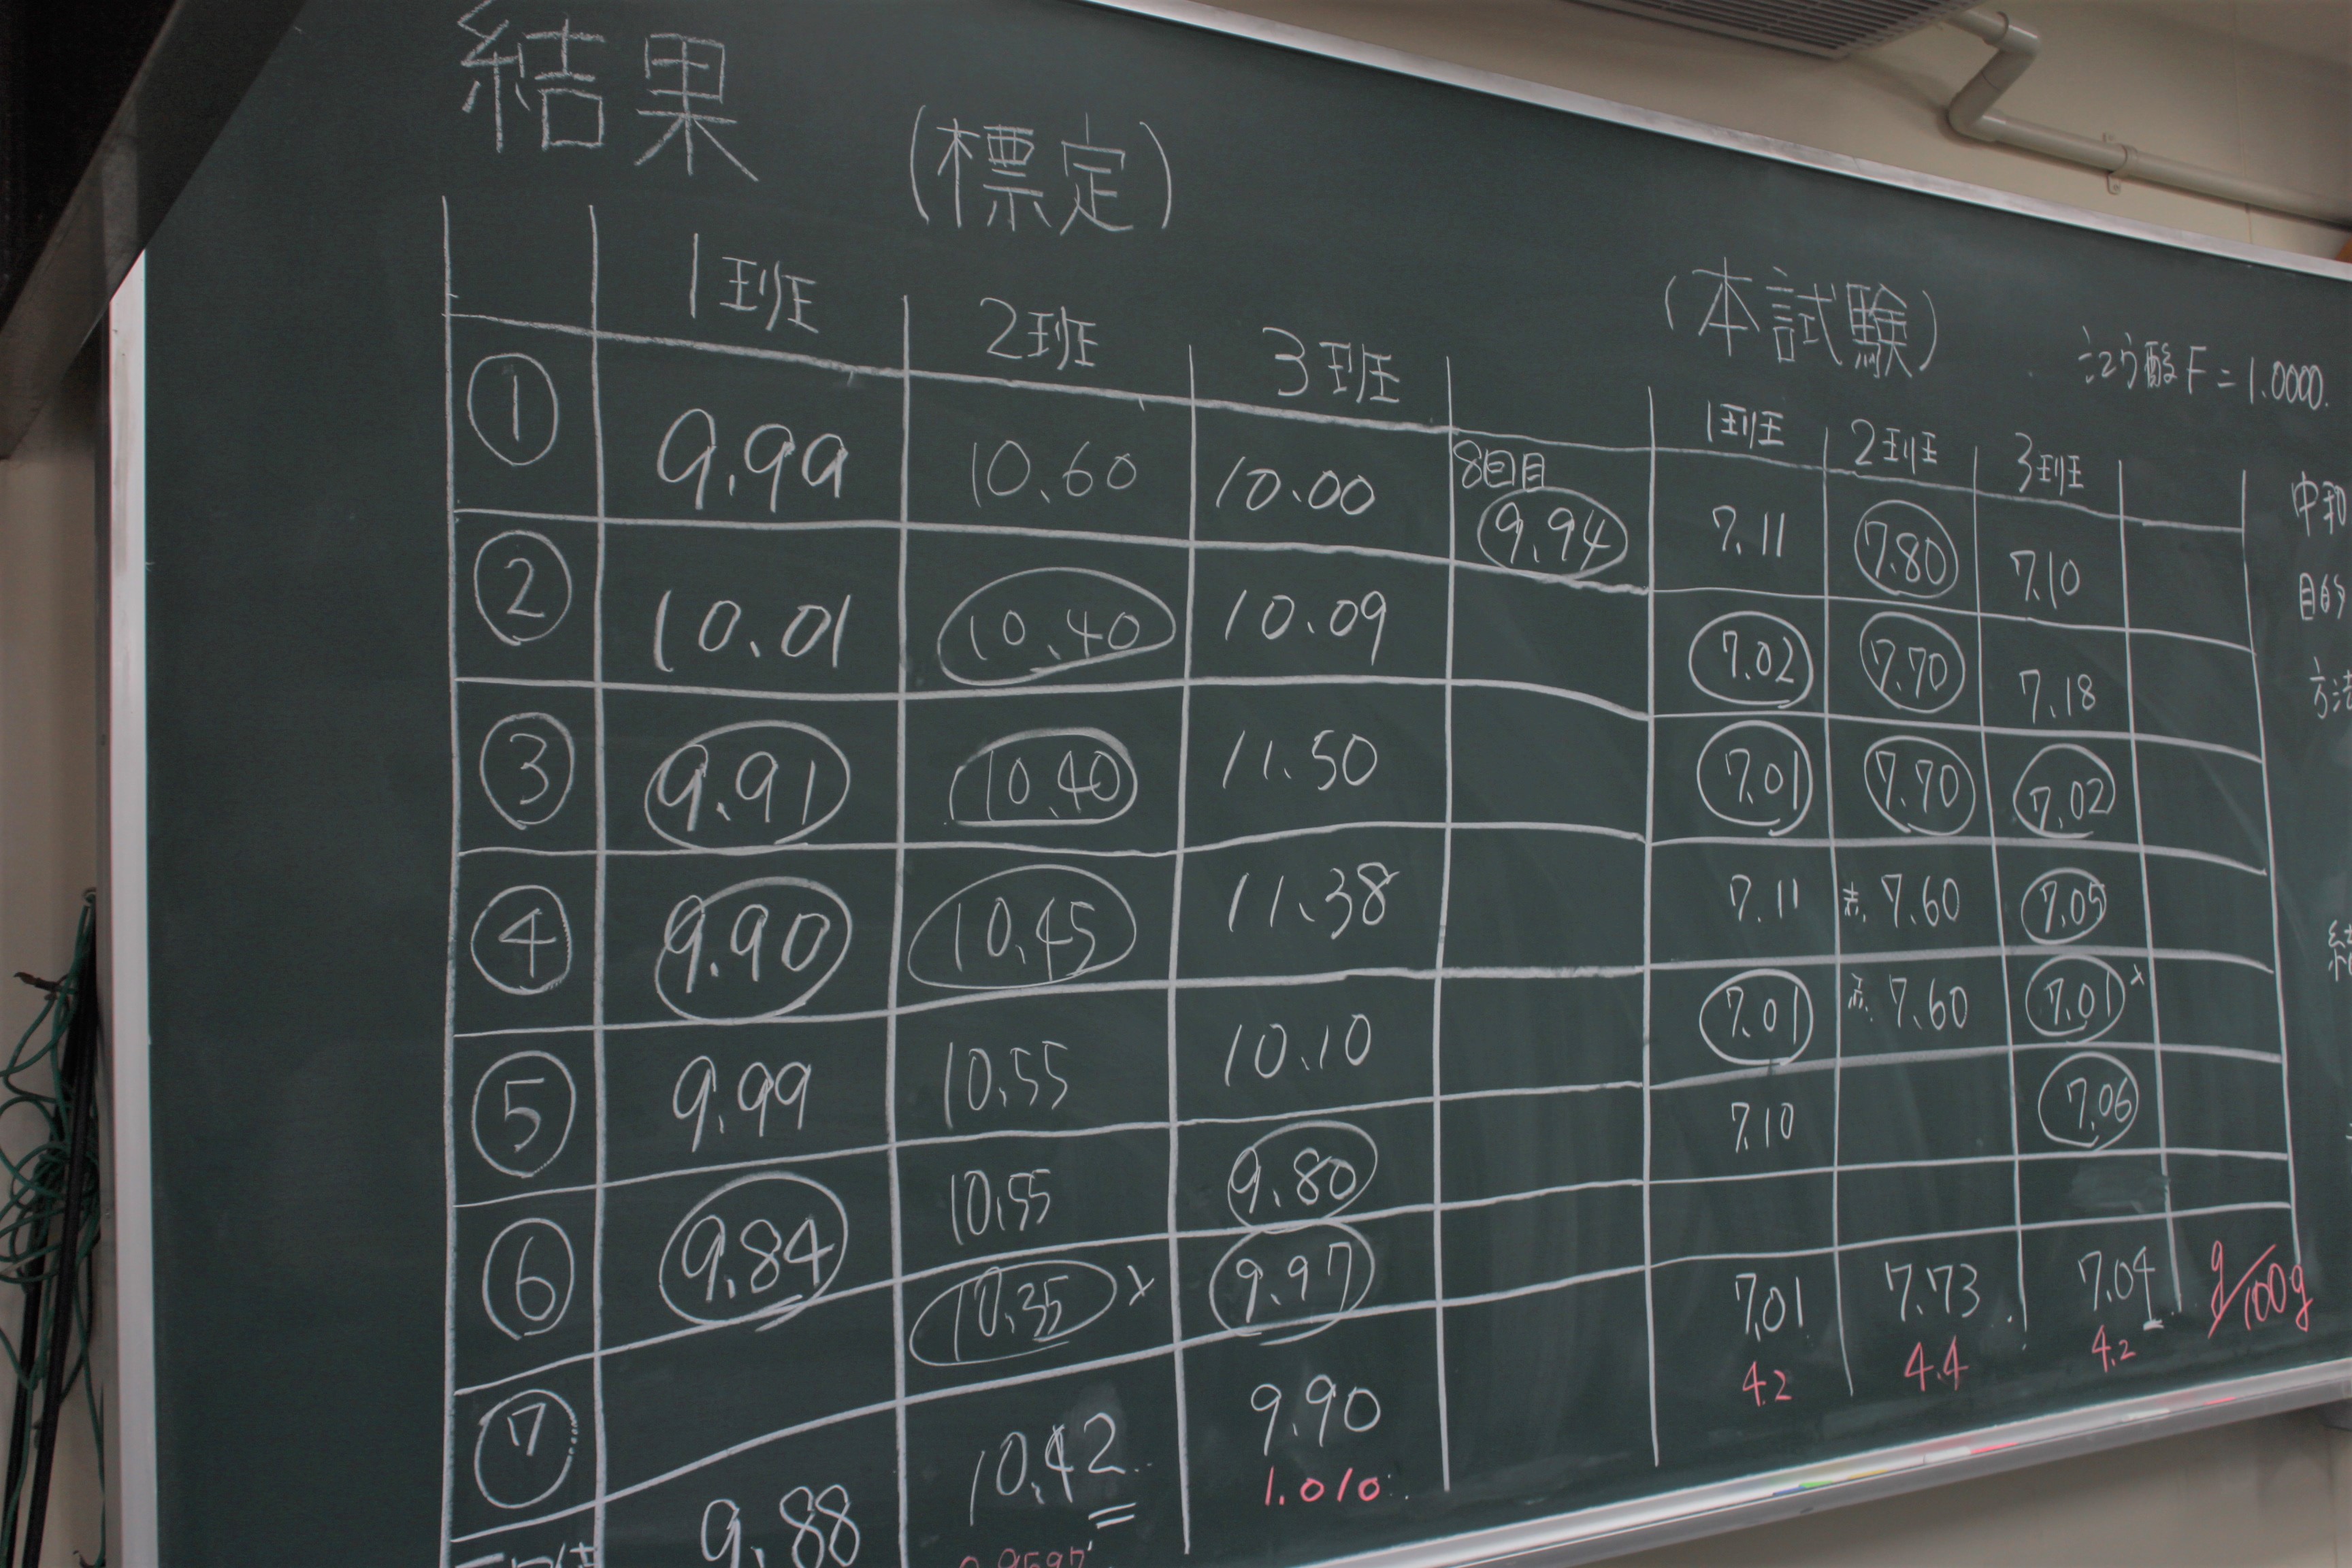 結果
(標定)
(本試験)
F=1.0000.
1班 2班 3班
1班 2班 3班
① 9.99 10.60 10.00 8回目 9.94
7.11 7.80 7.10
② 10.01 10.40 10.09
7.02 7.70 7.18
③ 9.91 10.40 11.50
7.01 7.70 7.02
④ 9.90 10.45 11.38
7.11 7.60 7.05
⑤ 9.99 10.55 10.10
7.01 7.60 7.01 ×
⑥ 9.84 10.55 9.80
7.10 7.06
⑦ 10.35 × 9.97
9.88 10.42 9.90
1.010
7.01 7.73 7.04
4.2 4.4 4.2 g/100g
中和
目的
方法